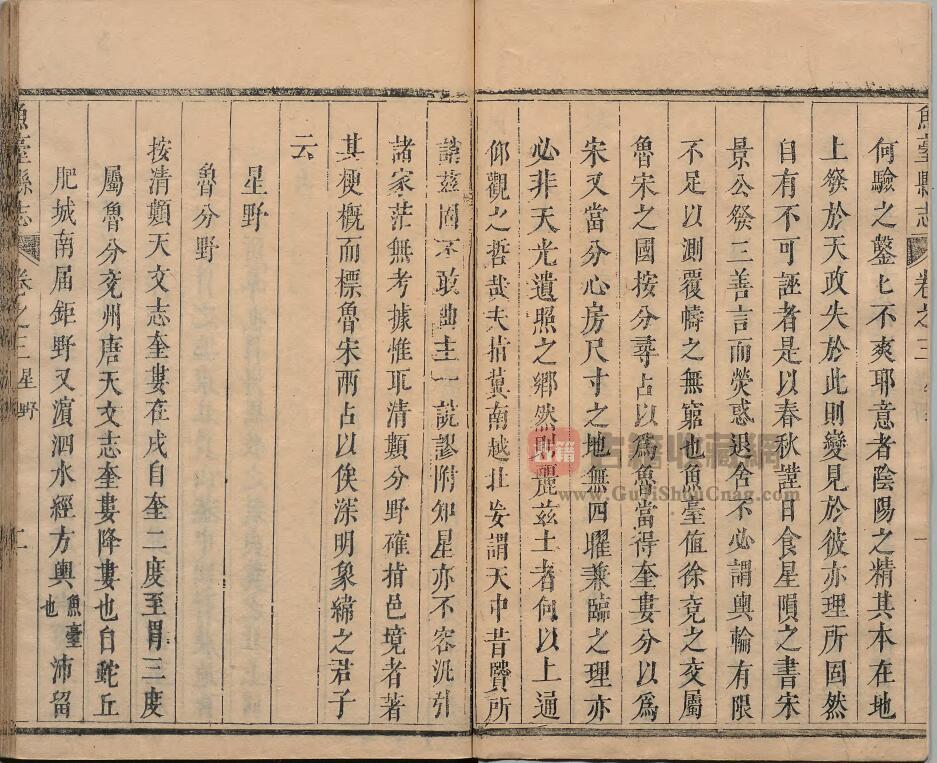 魚臺縣志 卷之三 一
何驗之鑿匕不爽耶意者陰陽之精其本在地
上發於天政失於此則變見於彼亦理所固然
自有不可誣者是以春秋謹日食星隕之書宋
景公發三善言而熒惑退舍不必謂輿輪有限
不足以測覆幬之無窮也魚臺值徐兗之交屬
魯宋之國按分尋占以爲魯當得奎婁分以爲
宋又當分心房尺寸之地無四曜兼臨之理亦
必非天光遺照之鄉然則麗茲土者何以上通
仰觀之哲哉夫指冀南越北妄謂天中昔賢所
譏茲固不敢曲主一說謬附知星亦不容汎引
諸家茫無考據惟取清類分野確指邑境者著
其梗概而標魯宋兩占以俟深明象緯之君子
云
星野
魯分野
按清類天文志奎婁在戌自奎二度至胃三度
屬魯分兗州唐天文志奎婁降婁也自蛇丘
肥城南届鉅野又濵泗水經方輿魚臺也沛留
魚臺縣志 卷之三 星野 二
古籍收藏網
www.GujiShouCang.com
收籍